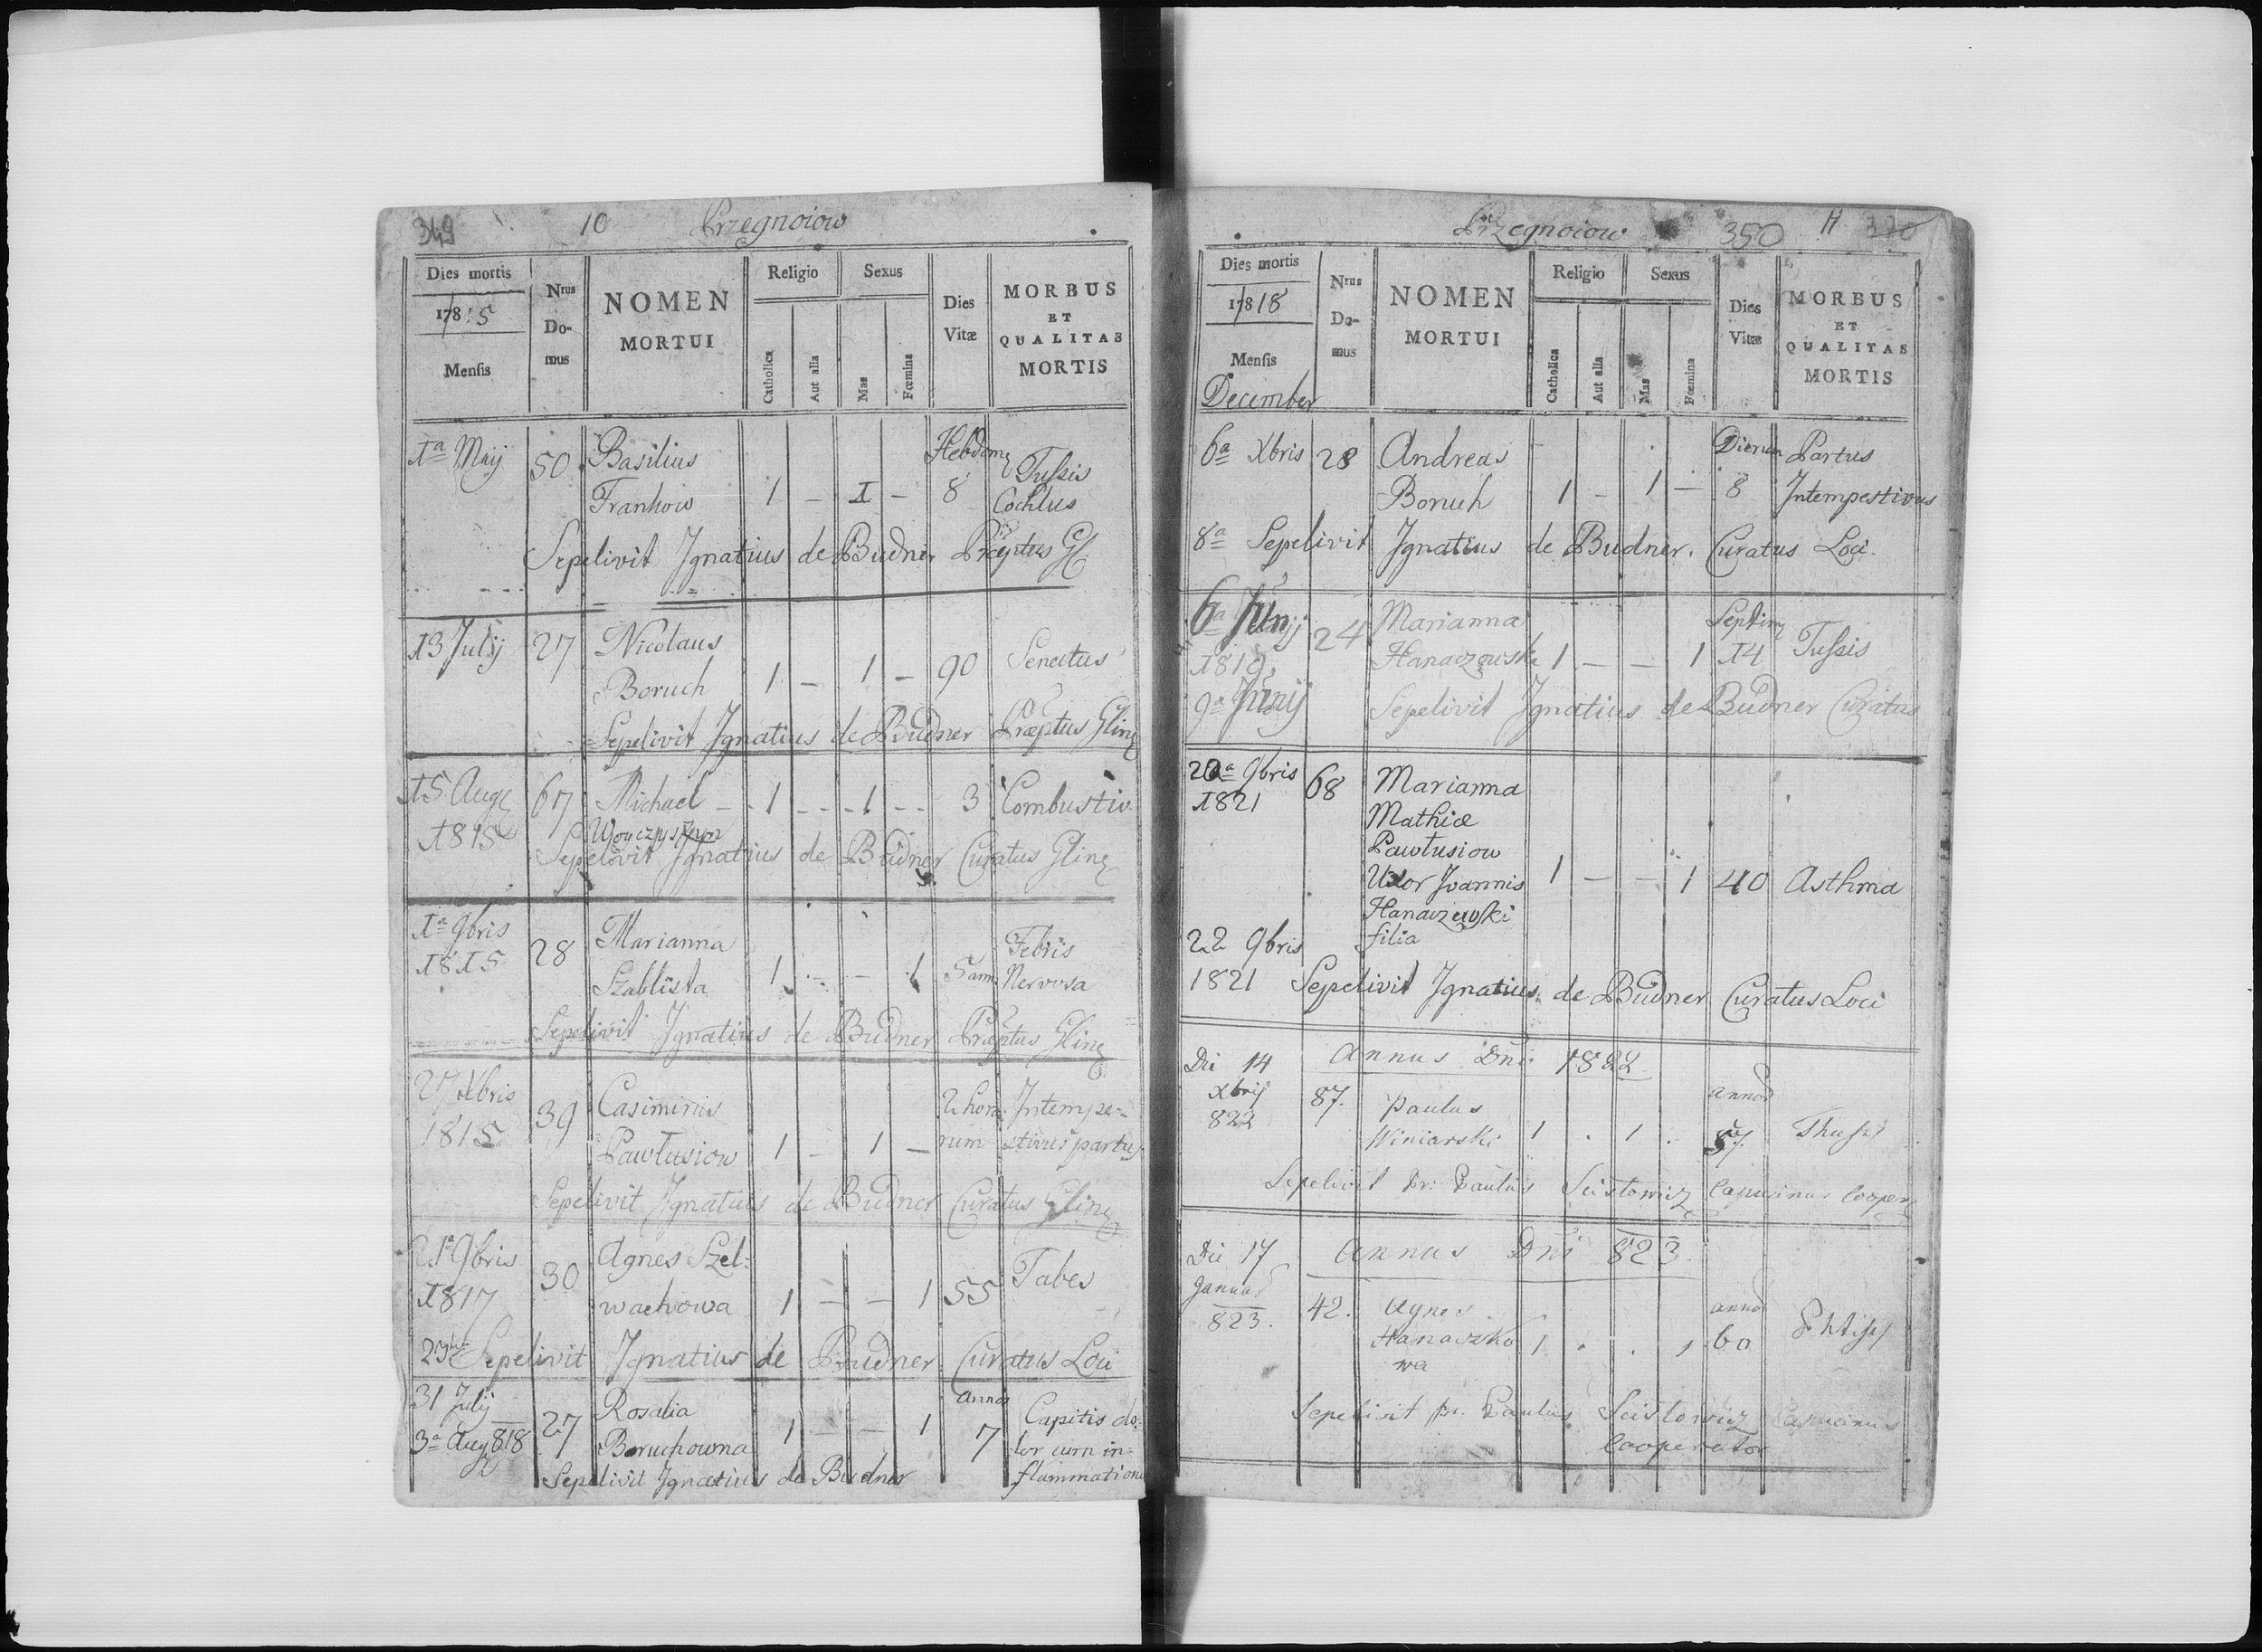 349 10 Przegnoiow
Dies mortis Nrus Domus NOMEN MORTUI Religio Sexus Dies Vitæ MORBUS ET QUALITAS MORTIS
1785
Mensis Catholica Aut alia Mas Fœmina
Ia Maij 50 Basilius Hebdom Tussis
Frankow 1 – I – 8 Cochlus
Sepelivit Ignatius de Budner Præptus Gl.
13 Julij 27 Nicolaus Senectus
Boruch 1 – 1 – 90
Sepelivit Ignatius de Budner Præptus Glin
15 Aug 67 Michael – 1 – – 1 – – 3 Combustio
1815
Sepelivit Ignatius de Budner Curatus Glin
Ia 9bris 28 Marianna Febris
1815 Szablista 1 – – 1 5 ann Nervosa
Sepelivit Ignatius de Budner Præptus Glin
27 Xbris 39 Casimirus 2 hora Intempe-
1815 Pawlusiow 1 – 1 – rum stivus partus
Sepelivit Ignatius de Budner Curatus Glin
21a 9bris 30 Agnes Szel- Tabes
1817 wachowa 1 – – 1 55
23 9bris Sepelivit Ignatius de Budner Curatus Loci
31 Julij 27 Rosalia annos Capitis do-
3a Aug 818 Boruchowna 1 – – 1 7 lor cum in-
Sepelivit Ignatius de Budner flammatione
Przegnoiow 350 11
Dies mortis Nrus Domus NOMEN MORTUI Religio Sexus Dies Vitæ MORBUS ET QUALITAS MORTIS
17818
Mensis Catholica Aut alia Mas Fœmina
December
6a Xbris 28 Andreas Dierum Partus
Boruch 1 – 1 – 8 Intempestivus
8a Sepelivit Ignatius de Budner. Curatus Loci.
6a Junij 24 Marianna Septim Tussis
1819 Hanaczewska 1 – – 1 14
9a Junij Sepelivit Ignatius de Budner Curatus
20a 9bris 68 Marianna
1821 Mathiæ
Pawlusiow
Uxor Joannis 1 – – 1 40 Asthma
Hanaczewski
22 9bris filia
1821 Sepelivit Ignatius de Budner Curatus Loci
Die 14 Annus Dni 1822
Xbris 87. Paulus annor
822 Winiarski 1 . 1 . 57.
Sepelivit Pr: Paulus Capucinus Cooper
Die 17 Annus Dni 823.
Januar 42. Agnes annor
823. Hanaczko 1 . . 1 60
wa
Sepelivit Pr. Paulus Capucinus
Cooperator